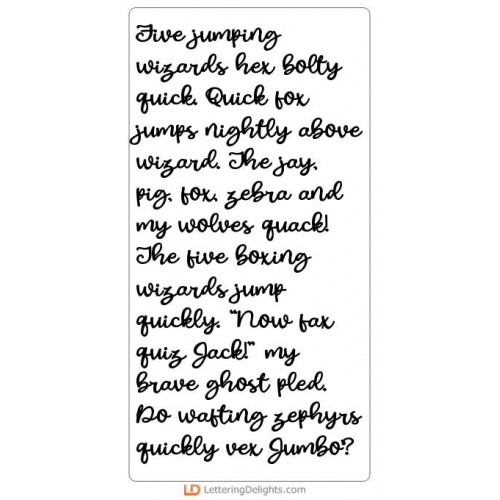 Five jumping
wizards hex bolty
quick. Quick fox
jumps nightly above
wizard. The jay,
pig, fox, zebra and
my wolves quack!
The five boxing
wizards jump
quickly. "Now fax
quiz Jack!" my
brave ghost pled.
Do wafting zephyrs
quickly vex Jumbo?
LD LetteringDelights.com